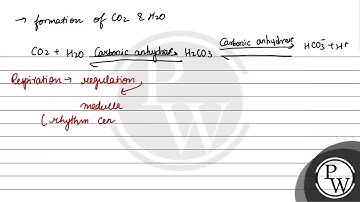 → formation of CO2 & H2O
CO2 + H2O Carbonic anhydrase H2CO3 Carbonic anhydrase HCO3⁻ + H⁺
Respiration → regulation
medulla
(rhythm cen
P
W
PW